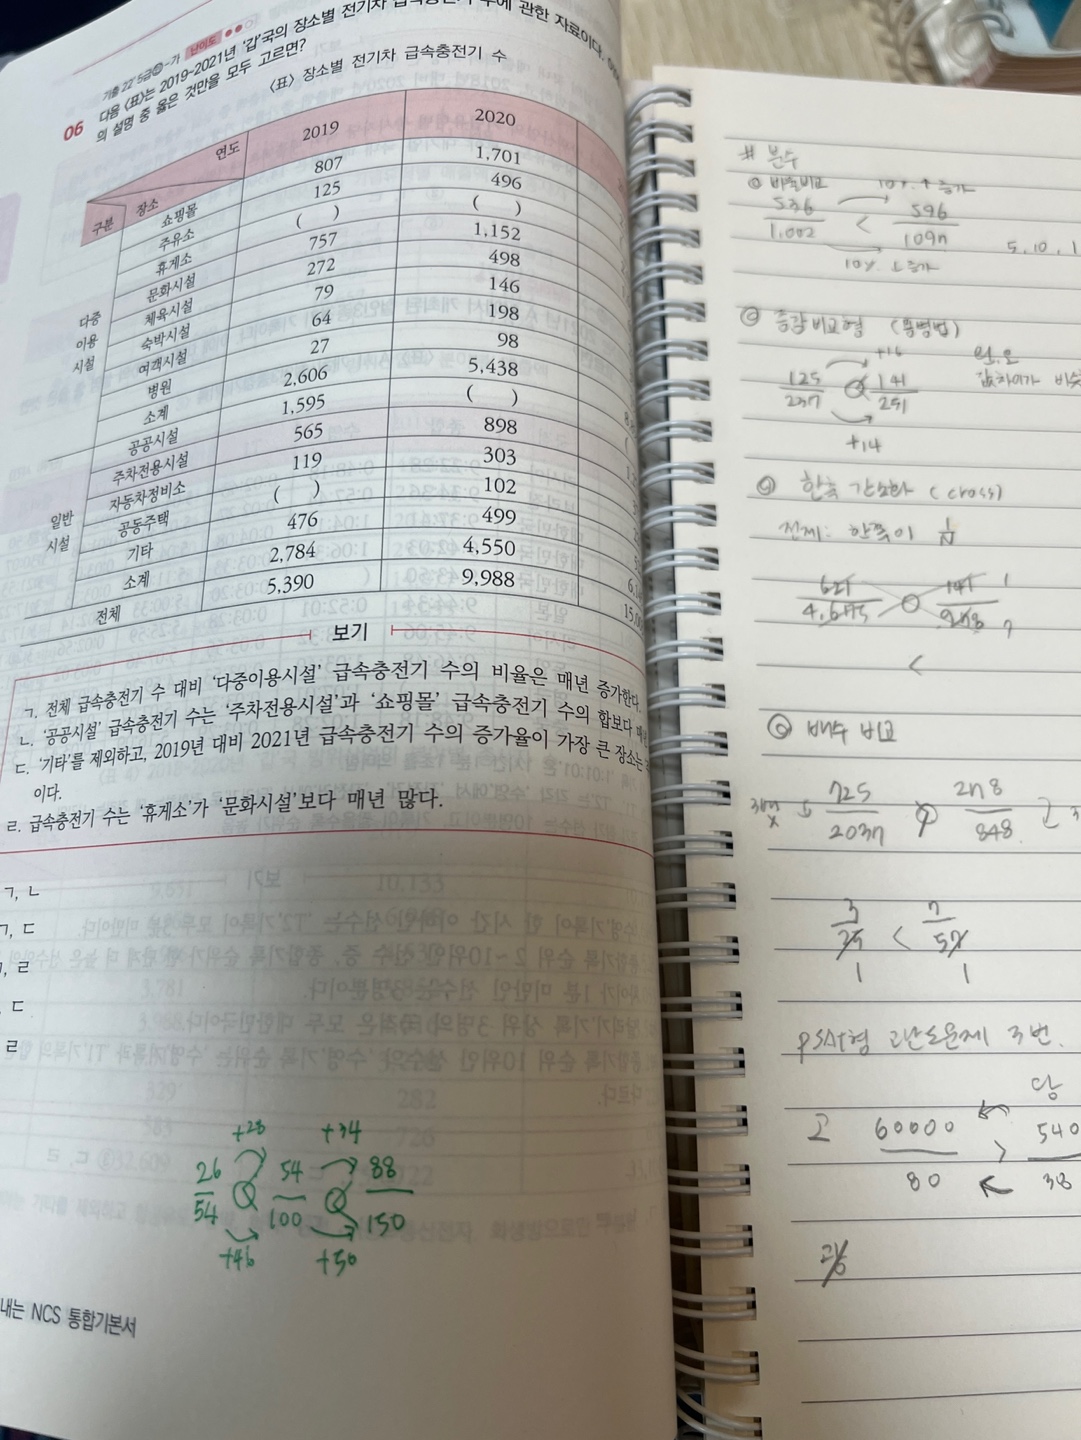 기출 22' 5급㉮-가 난이도 ●●○
06 다음 〈표〉는 2019~2021년 '갑'국의 장소별 전기차 급속충전기 수에 관한 자료이다.
의 설명 중 옳은 것만을 모두 고르면?
〈표〉 장소별 전기차 급속충전기 수
구분 장소 연도 2019 2020
다중 이용 시설
쇼핑몰 807 1,701
주유소 125 496
휴게소 ( ) ( )
문화시설 757 1,152
체육시설 272 498
숙박시설 79 146
여객시설 64 198
병원 27 98
소계 2,606 5,438
일반 시설
공공시설 1,595 ( )
주차전용시설 565 898
자동차정비소 119 303
공동주택 ( ) 102
기타 476 499
소계 2,784 4,550
전체 5,390 9,988
보기
ㄱ. 전체 급속충전기 수 대비 '다중이용시설' 급속충전기 수의 비율은 매년 증가한다.
ㄴ. '공공시설' 급속충전기 수는 '주차전용시설'과 '쇼핑몰' 급속충전기 수의 합보다
ㄷ. '기타'를 제외하고, 2019년 대비 2021년 급속충전기 수의 증가율이 가장 큰 장소는
이다.
ㄹ. 급속충전기 수는 '휴게소'가 '문화시설'보다 매년 많다.
ㄱ, ㄴ
ㄱ, ㄷ
, ㄹ
, ㄷ
ㄹ
+28 +34
26 54 88
54 100 150
+46 +50
내는 NCS 통합기본서
# 분수
10% ↑ 증가
536 < 596
1,002
10% ↓ 증가
5, 10, 1
② 증감비교형
+16
125 141
237 251
+14
한쪽 간소화 (cross)
전제: 한쪽이 1/N
621 141
<
배수 비교
725 278
2037 848
3 < 7
1 1
PSAT형 고난도문제 3번.
당
고 60000 > 540
80 38